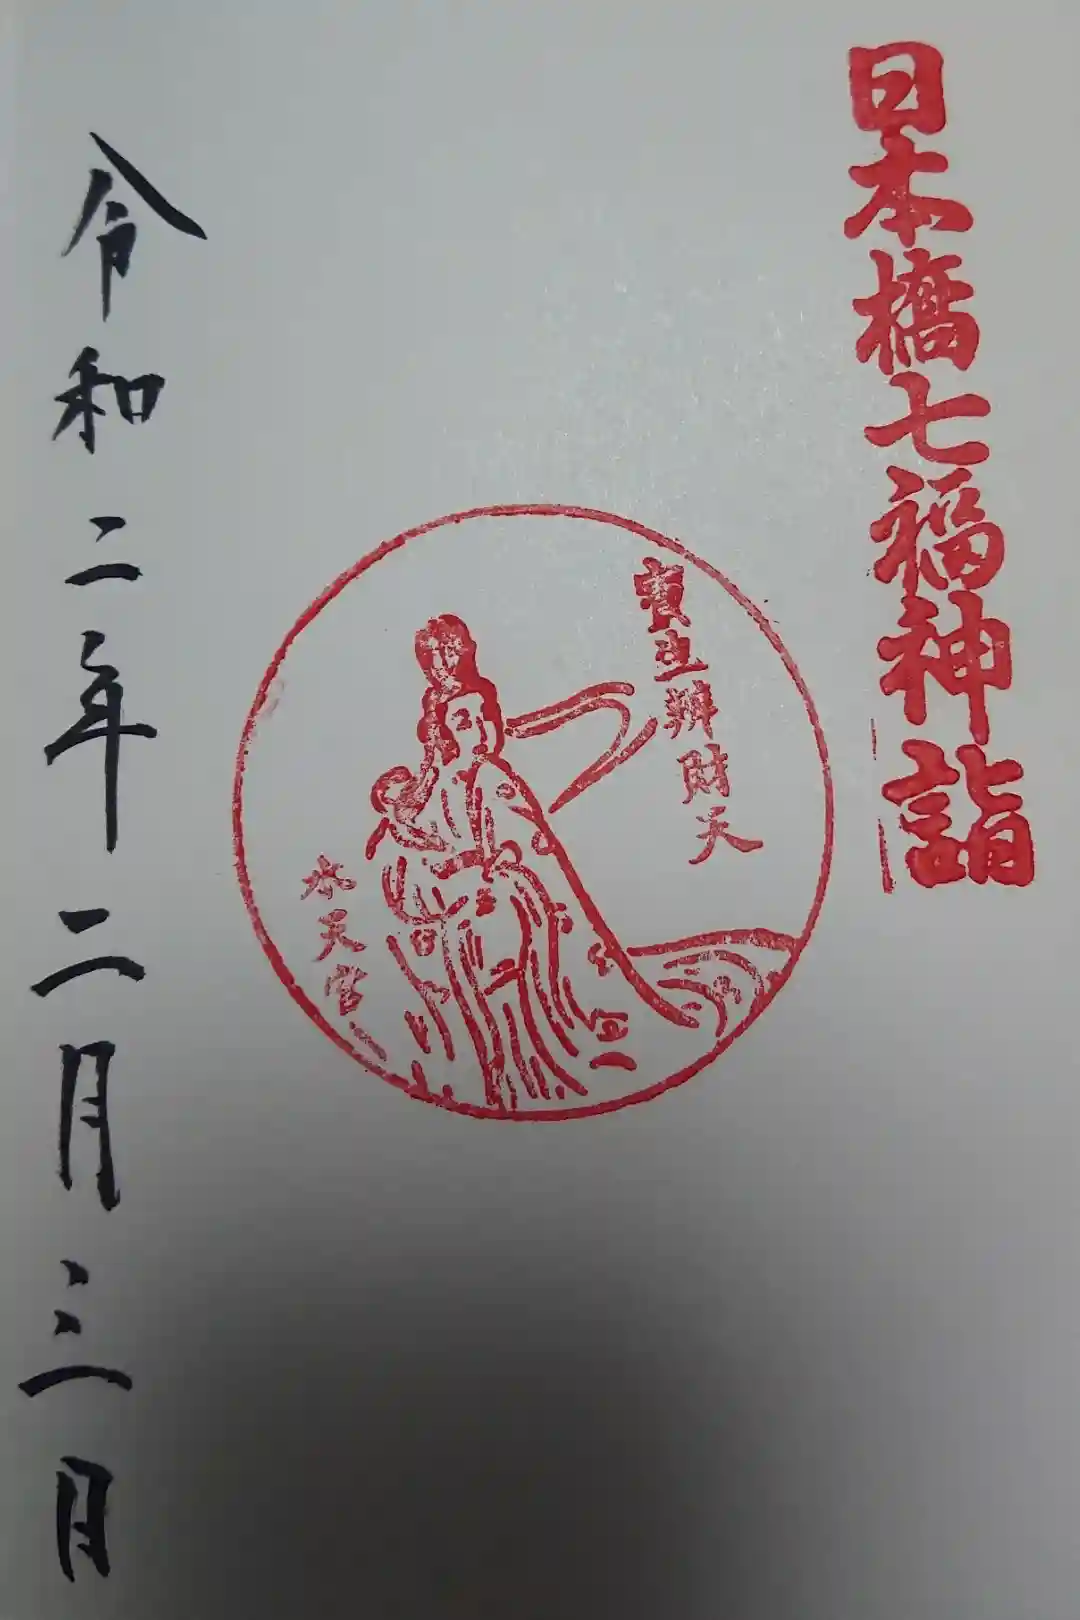 日本橋七福神詣
寶生辨財天
水天宮
令和二年二月三日